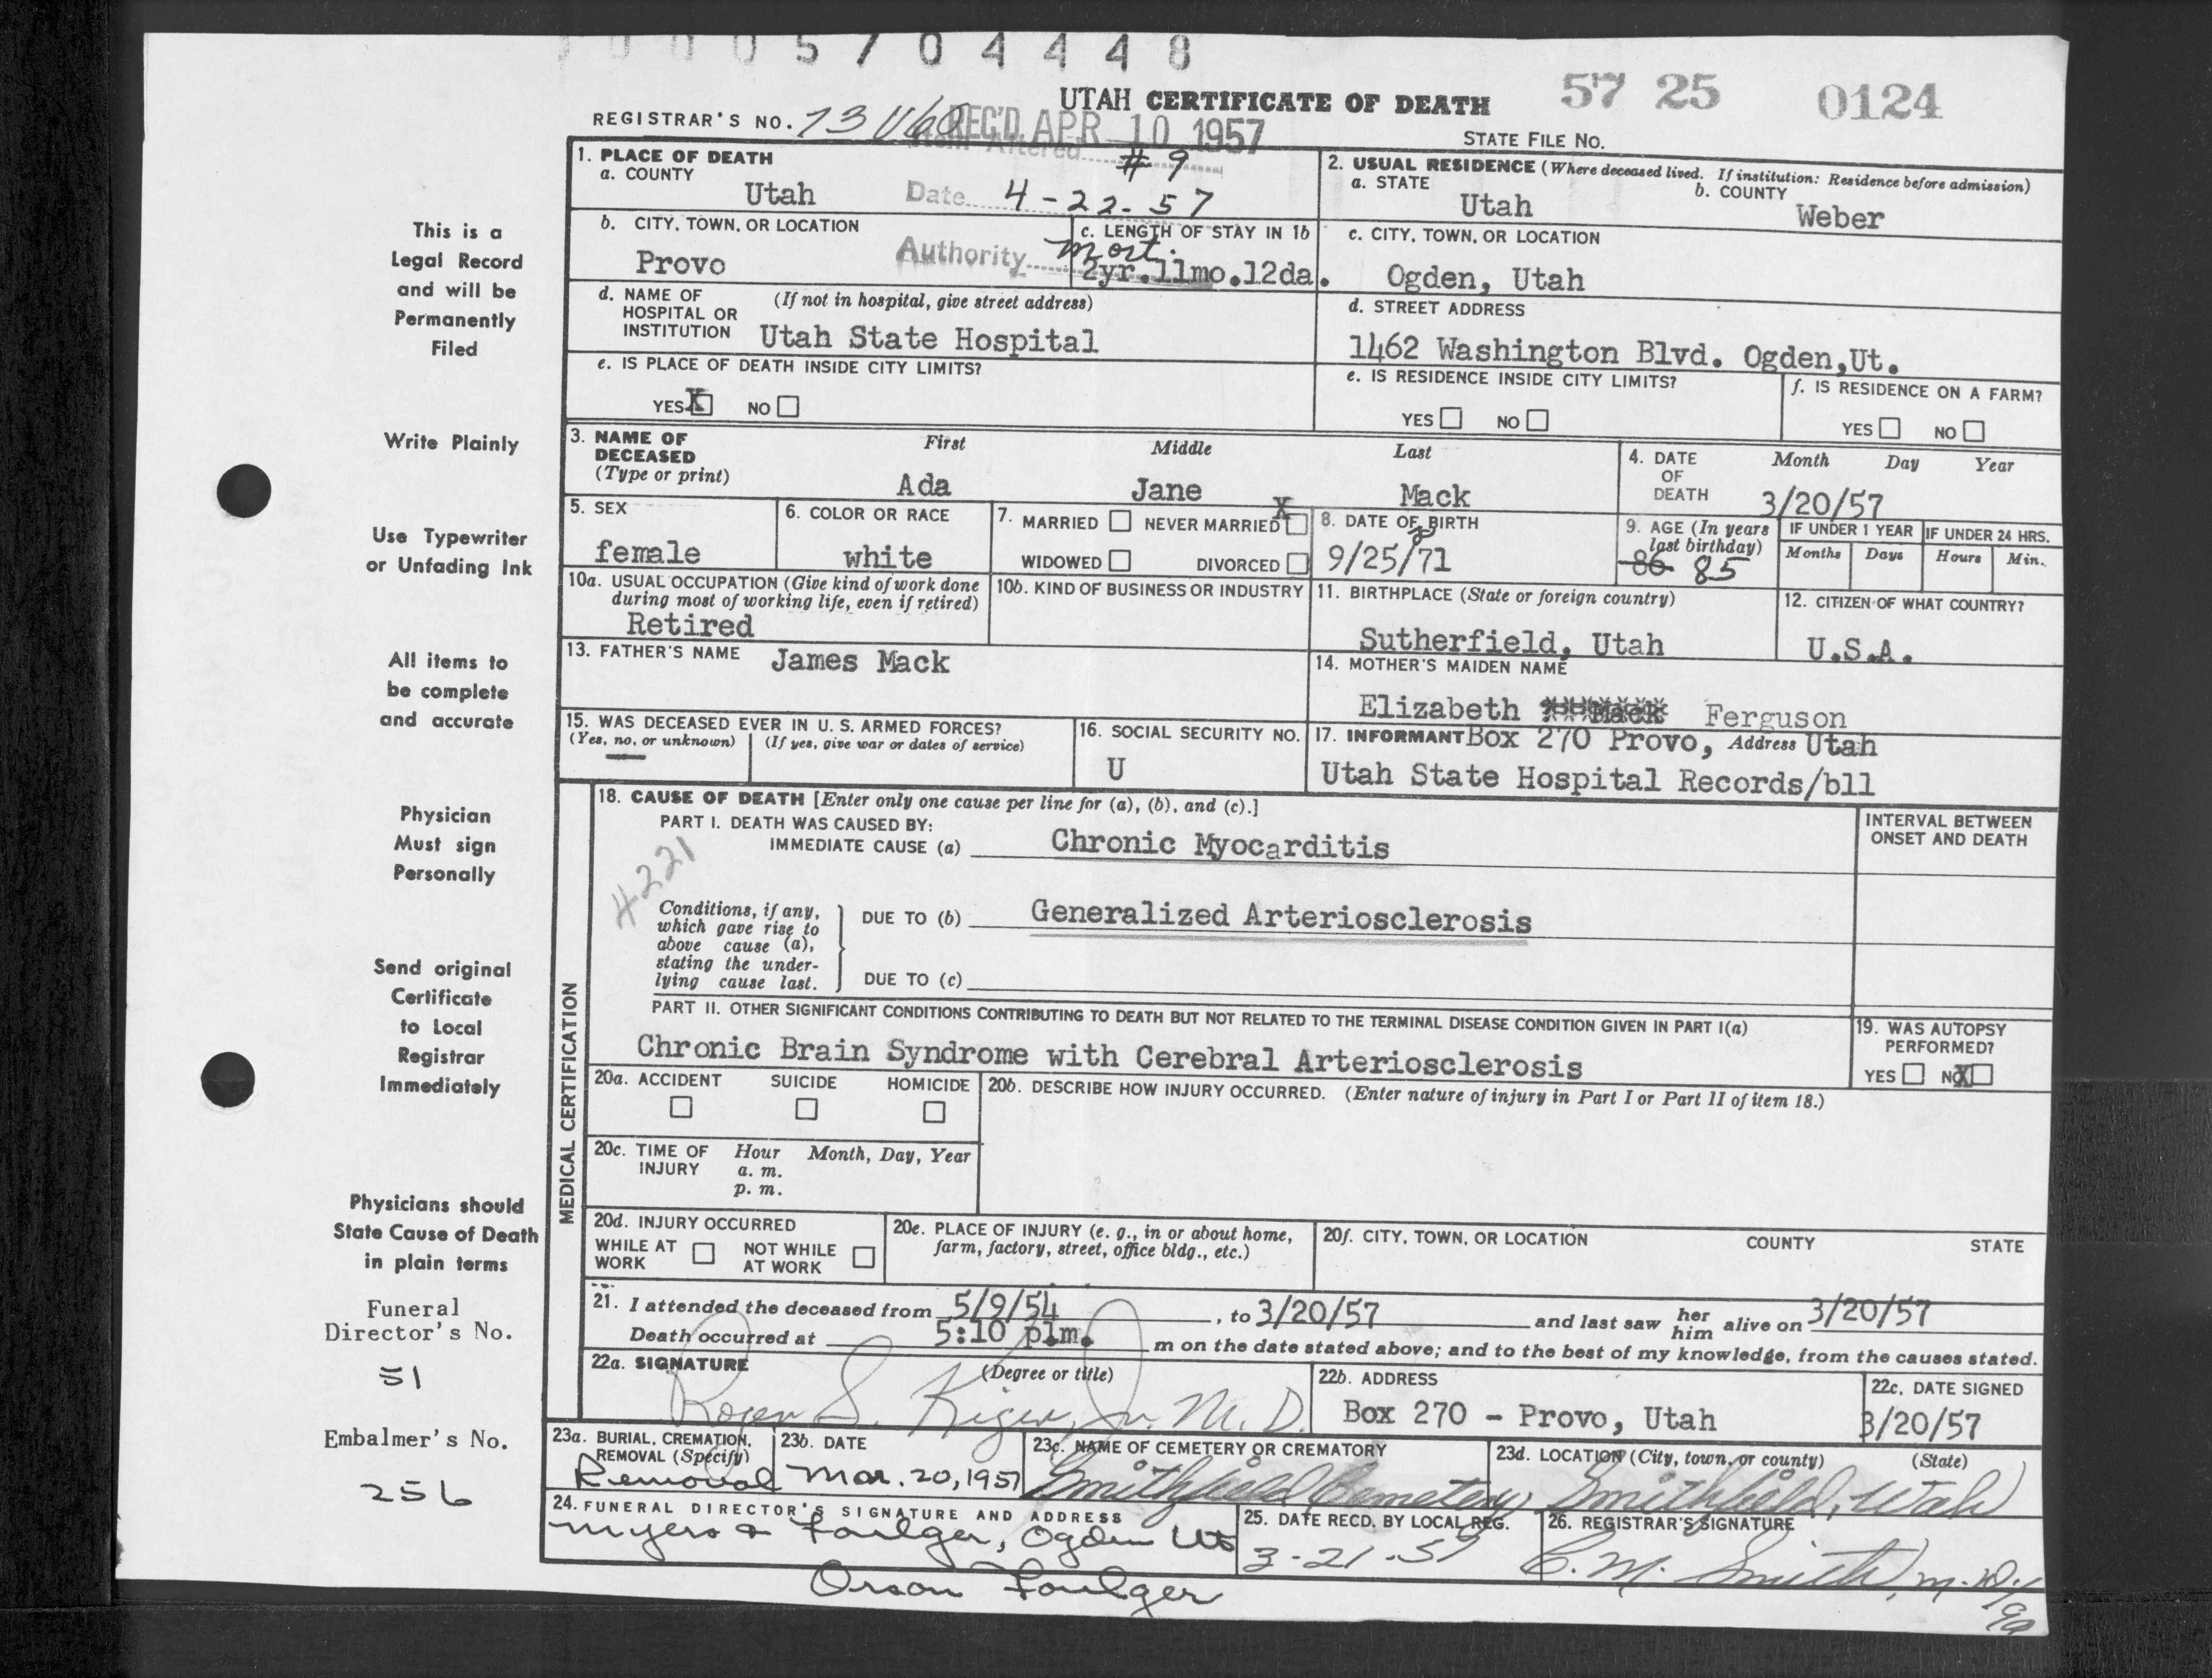 5 7 0 4 4 4 8
UTAH CERTIFICATE OF DEATH
57 25 0124
REGISTRAR'S NO.
REC'D APR 10 1957
STATE FILE NO.
Item Altered # 9
Date 4-22-57
Authority Mort.
1. PLACE OF DEATH
a. COUNTY
Utah
b. CITY, TOWN, OR LOCATION
Provo
c. LENGTH OF STAY IN 1b
2yr.11mo.12da.
d. NAME OF HOSPITAL OR INSTITUTION (If not in hospital, give street address)
Utah State Hospital
e. IS PLACE OF DEATH INSIDE CITY LIMITS?
YES X NO
2. USUAL RESIDENCE (Where deceased lived. If institution: Residence before admission)
a. STATE
Utah
b. COUNTY
Weber
c. CITY, TOWN, OR LOCATION
Ogden, Utah
d. STREET ADDRESS
1462 Washington Blvd. Ogden,Ut.
e. IS RESIDENCE INSIDE CITY LIMITS?
YES NO
f. IS RESIDENCE ON A FARM?
YES NO
3. NAME OF DECEASED (Type or print)
First Middle Last
Ada Jane Mack
4. DATE OF DEATH
Month Day Year
3/20/57
5. SEX
female
6. COLOR OR RACE
white
7. MARRIED NEVER MARRIED X
WIDOWED DIVORCED
8. DATE OF BIRTH
9/25/71
9. AGE (In years last birthday)
86 85
IF UNDER 1 YEAR
Months Days
IF UNDER 24 HRS.
Hours Min.
10a. USUAL OCCUPATION (Give kind of work done during most of working life, even if retired)
Retired
10b. KIND OF BUSINESS OR INDUSTRY
11. BIRTHPLACE (State or foreign country)
Sutherfield, Utah
12. CITIZEN OF WHAT COUNTRY?
U.S.A.
13. FATHER'S NAME
James Mack
14. MOTHER'S MAIDEN NAME
Elizabeth Mack Ferguson
15. WAS DECEASED EVER IN U. S. ARMED FORCES?
(Yes, no, or unknown) (If yes, give war or dates of service)
16. SOCIAL SECURITY NO.
U
17. INFORMANT Box 270 Provo, Address Utah
Utah State Hospital Records/bll
MEDICAL CERTIFICATION
18. CAUSE OF DEATH [Enter only one cause per line for (a), (b), and (c).]
PART I. DEATH WAS CAUSED BY:
IMMEDIATE CAUSE (a) Chronic Myocarditis
INTERVAL BETWEEN ONSET AND DEATH
4221
Conditions, if any, which gave rise to above cause (a), stating the underlying cause last.
DUE TO (b) Generalized Arteriosclerosis
DUE TO (c)
PART II. OTHER SIGNIFICANT CONDITIONS CONTRIBUTING TO DEATH BUT NOT RELATED TO THE TERMINAL DISEASE CONDITION GIVEN IN PART I(a)
Chronic Brain Syndrome with Cerebral Arteriosclerosis
19. WAS AUTOPSY PERFORMED?
YES NO X
20a. ACCIDENT SUICIDE HOMICIDE
20b. DESCRIBE HOW INJURY OCCURRED. (Enter nature of injury in Part I or Part II of item 18.)
20c. TIME OF INJURY
Hour Month, Day, Year
a. m.
p. m.
20d. INJURY OCCURRED
WHILE AT WORK NOT WHILE AT WORK
20e. PLACE OF INJURY (e. g., in or about home, farm, factory, street, office bldg., etc.)
20f. CITY, TOWN, OR LOCATION COUNTY STATE
21. I attended the deceased from 5/9/54, to 3/20/57 and last saw her him alive on 3/20/57
Death occurred at 5:10 p.m. m on the date stated above; and to the best of my knowledge, from the causes stated.
22a. SIGNATURE (Degree or title)
Roger S. Kiger, Jr. M.D.
22b. ADDRESS
Box 270 - Provo, Utah
22c. DATE SIGNED
3/20/57
23a. BURIAL, CREMATION, REMOVAL (Specify)
Removal
23b. DATE
Mar. 20, 1957
23c. NAME OF CEMETERY OR CREMATORY
Smithfield Cemetery
23d. LOCATION (City, town, or county) (State)
Smithfield, Utah
24. FUNERAL DIRECTOR'S SIGNATURE AND ADDRESS
Myers & Foulger, Ogden Ut
Orson Foulger
25. DATE RECD. BY LOCAL REG.
3-21-57
26. REGISTRAR'S SIGNATURE
C. M. Smith, M.D.
This is a
Legal Record
and will be
Permanently
Filed
Write Plainly
Use Typewriter
or Unfading Ink
All items to
be complete
and accurate
Physician
Must sign
Personally
Send original
Certificate
to Local
Registrar
Immediately
Physicians should
State Cause of Death
in plain terms
Funeral
Director's No.
51
Embalmer's No.
256